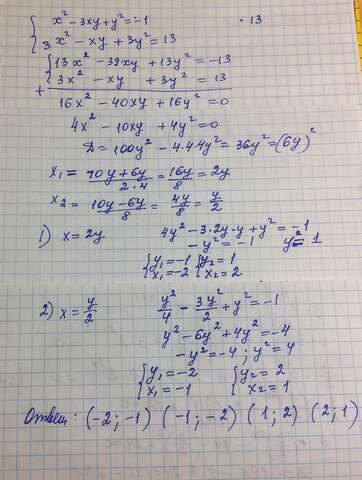 { x² - 3xy + y² = -1 · 13
3x² - xy + 3y² = 13
{ 13x² - 39xy + 13y² = -13
+ 3x² - xy + 3y² = 13
16x² - 40xy + 16y² = 0
4x² - 10xy + 4y² = 0
D = 100y² - 4·4·4y² = 36y² = (6y)²
x₁ = (10y + 6y)/(2·4) = 16y/8 = 2y
x₂ = (10y - 6y)/8 = 4y/8 = y/2
1) x = 2y 4y² - 3·2y·y + y² = -1
-y² = -1 y² = 1
{ y₁ = -1 { y₂ = 1
x₁ = -2 x₂ = 2
2) x = y/2 y²/4 - 3y²/2 + y² = -1
y² - 6y² + 4y² = -4
-y² = -4; y² = 4
{ y₁ = -2 { y₂ = 2
x₁ = -1 x₂ = 1
Ответ: (-2; -1) (-1; -2) (1; 2) (2; 1)